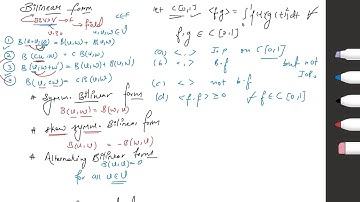 Bilinear form
B: V×V → field
① B(u+v,w) = B(u,w) + B(v,w)
② B(cu,w) = cB(u,w)
③ B(u,v+w) = B(u,v) + B(u,w)
B(u,cw) = cB(u,w)
* Symm. Bilinear form
B(u,w) = B(w,u)
* Skew symm. Bilinear form
B(u,v) = -B(v,u)
* Alternating Bilinear form
B(u,u) = 0
for all u∈V
let C[0,1] <f,g> = ∫ f(t)g(t)dt
f,g ∈ C[0,1]
(a) <,> I.p on C[0,1]
(b) <,> B.f but not I.p.
(c) <,> not b.f
(d) <f,f> ≥ 0 ∀ f∈C[0,1]